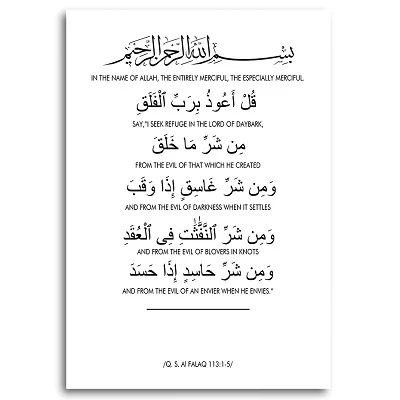 بسم الله الرحمن الرحيم
IN THE NAME OF ALLAH, THE ENTIRELY MERCIFUL, THE ESPECIALLY MERCIFUL.
قُلْ أَعُوذُ بِرَبِّ ٱلْفَلَقِ
SAY,"I SEEK REFUGE IN THE LORD OF DAYBARK,
مِن شَرِّ مَا خَلَقَ
FROM THE EVIL OF THAT WHICH HE CREATED
وَمِن شَرِّ غَاسِقٍ إِذَا وَقَبَ
AND FROM THE EVIL OF DARKNESS WHEN IT SETTLES
وَمِن شَرِّ ٱلنَّفَّٰثَٰتِ فِى ٱلْعُقَدِ
AND FROM THE EVIL OF BLOVERS IN KNOTS
وَمِن شَرِّ حَاسِدٍ إِذَا حَسَدَ
AND FROM THE EVIL OF AN ENVIER WHEN HE ENVIES."
/Q. S. Al FALAQ 113:1-5/